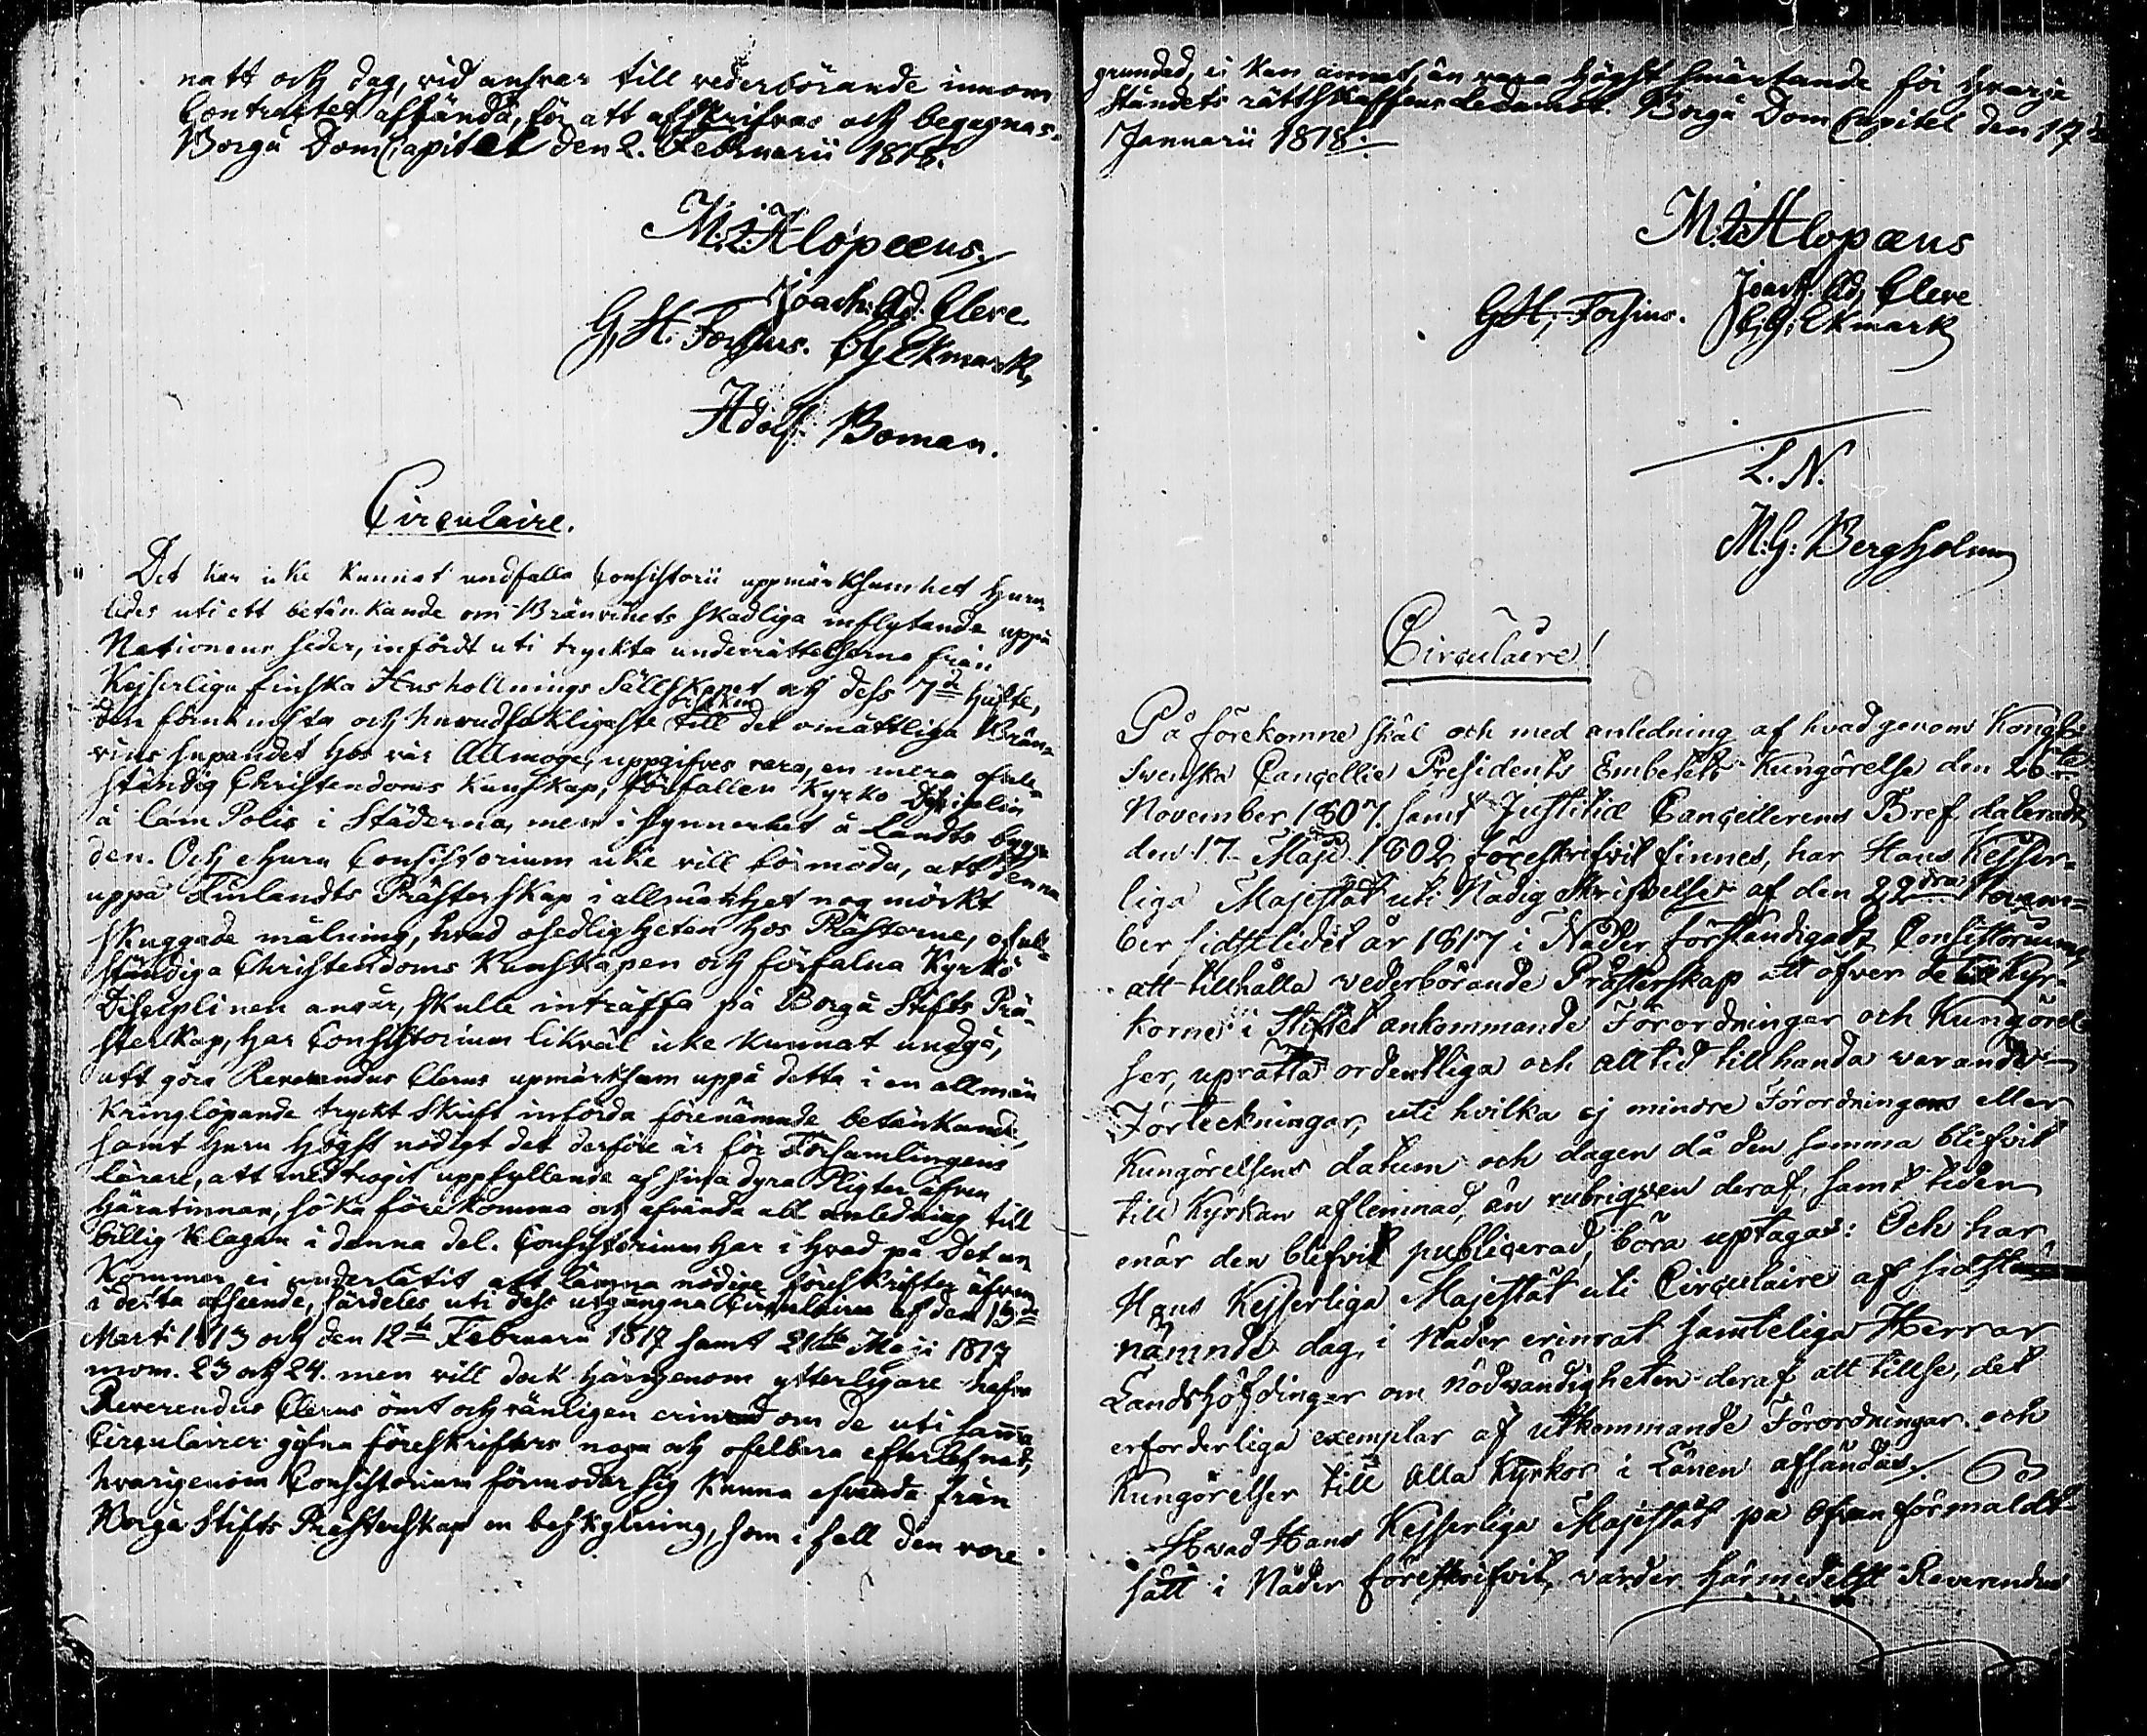 natt och dag, vid ansvar till vederbörande innom
Contractet affända, för att afskrifvas och begagnas.
Borgå Dom Capitel den 2. Februarii 1818.
M: Alopæus.
Joach: Ad: Cleve.
G, H. Forsius. C G Ekmark,
Adolf Boman.
Circulaire.
Det har icke kunnat undfalla Consistorii uppmärksamhet huru-
ledes uti ett betänkande om Bränvinets skadliga inflytande uppå
Nationens seder, infördt uti tryckta underrättelserna från
Kejserliga finska Hushollnings Sällskapet och dess 7de häfte,
den förnämsta och hufvudsakligaste orsaken till det omåttliga Brän-
vins supandet hos vår Allmoge, uppgifves vara, en mera ofull-
ständig Christendoms kunskap, förfallen Kyrko Disciplin
å lam Polis i Städerna, men i synnerhet å Landts bygg-
den. Och ehuru Consistorium icke vill förmoda, att denna
uppå Finlandts Prästerskap i allmänhet nog mörkt
skuggade målning, hvad osedligheten hos Prästerne, ofull-
ständiga Christendoms kunskapen och förfalna Kyrko
Disciplinen angår, skulle inträffa på Borgå Stifts Prä-
sterskap, har Consistorium likväl icke kunnat undgå,
att göra Reverendus Clerus upmärksam uppå detta i en allmän
kringlöpande tryckt skrift införda förenämnde betänkande,
samt huru högst nödigt det derföre är för Församlingens
lärare, att med trogit uppfyllande af sina dyra Pligter äfven
härutinnan, söka förekomma och afvända all anledning till
billig klagan i denna del. Consistorium har i hvad på Det an-
kommer ej underlåtit att lämna nödige föreskrifter äfven
i detta afseende, särdeles uti dess utgångna Circulairer af den 13de
Marti 1813 och den 12te Februarii 1817 samt 21ste Maji 1817
mom. 23 och 24. men vill dock härigenom ytterligare hafva
Reverendus Clerus ömt och vänligen erinrad om de uti samma
Circulairer gifna föreskrifters noga och ofelbara efterlefnad,
hvarigenom Consistorium förmodar sig kunna afvända från
Borgå Stifts Prästerskap en beskyllning, som i fall den vore
grundad, ej kan annat, än vara högst smärtande för hvarje
Ståndets rättskaffens Ledamot. Borgå Dom Capitel den 17de
Januarii 1818.
M: Alopæus
Joach. Ad, Cleve
G H, Forsius. C, G, Ekmark
L. N.
M: G: Bergholm
Circulaire!
På förekomne skäl och med anledning af hvad genom Kongl:
Swenska Cancellie Presidents Embetets Kungörelse den 26te
November 1807. samt Justitiæ Cancellerens Bref dateradt
den 17 Maji 1802 föreskrifvit finnes, har Hans Kejser-
liga Majestät uti Nådig Skrifvelse af den 22dra Novem-
ber sidstledit år 1817 i Nåder förständigadt Consistorium,
att tillhålla vederbörande Prästerskap att öfver de till Kyr-
korne i Stiftet ankommande Förordningar och Kungörel-
ser, uprätta ordentliga och alltid tillhanda varande
Förteckningar, uti hvilka ej mindre Förordningens eller
Kungörelsens datum och dagen då den samma blifvit
till Kyrkan aflemnad, än rubriquen deraf, samt tiden
enär den blefvit publicerad, böra uptagas: Och har
Hans Kejserliga Majestät uti Circulaire af sidst-
nämnde dag, i Nåder erinrat samteliga Herrar
Landshöfdingar om nödvändigheten deraf att tillse, det
erforderliga exemplar af utkommande Förordningar och
Kungörelser till alla Kyrkor i Länen affändas.
Hvad Hans Kejserliga Majestät på ofvanförmäldt
sätt i Nåder föreskrifvit, varder härmedelst Reverendus